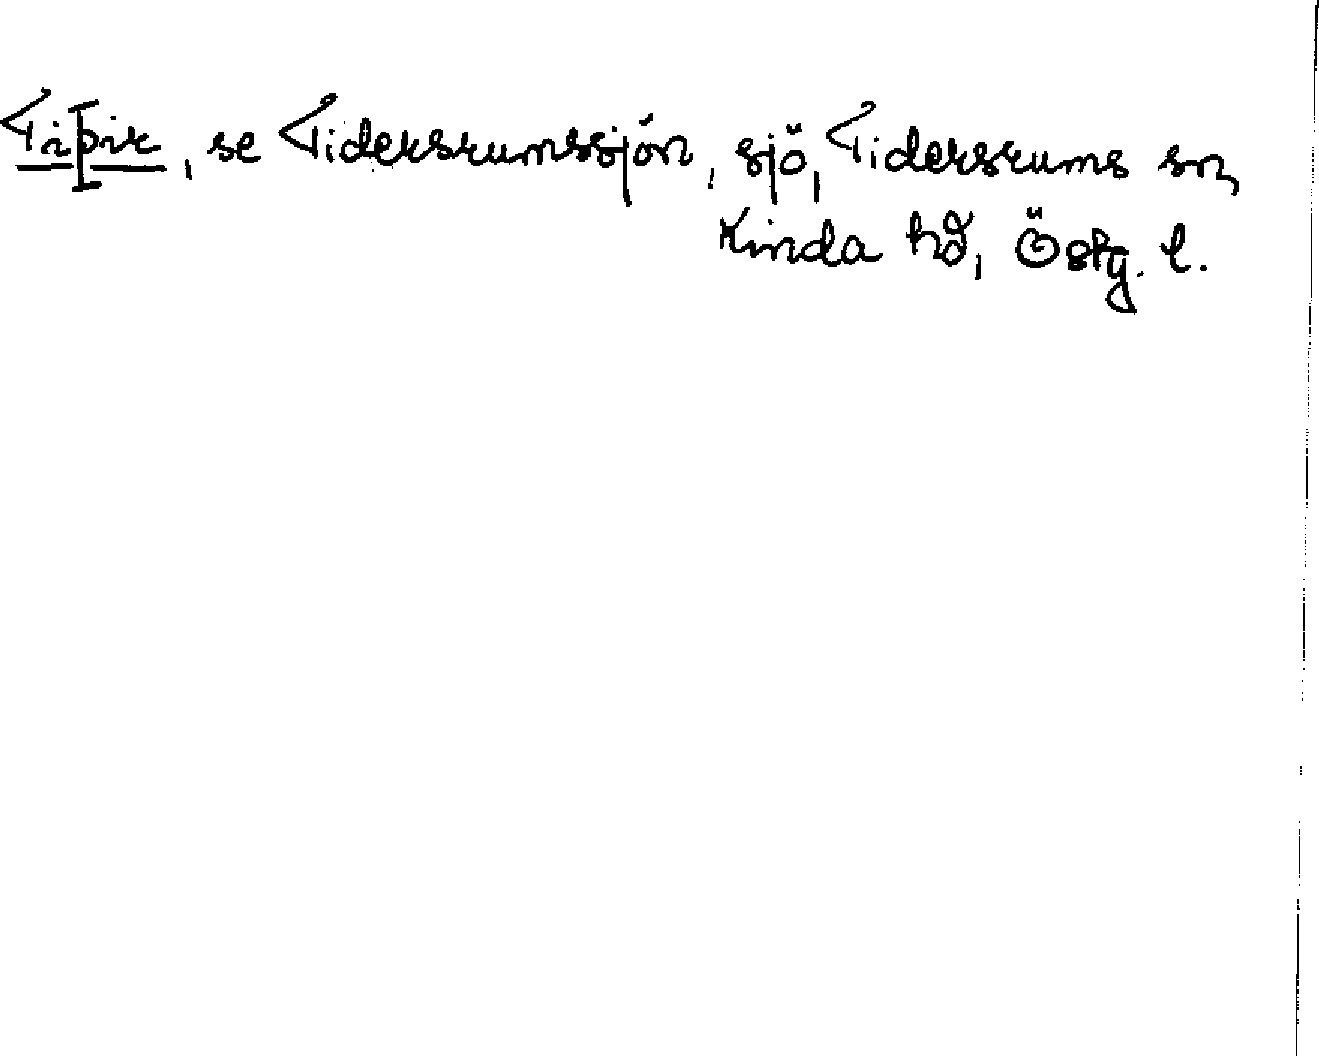 Tiþir, se Tidersrumssjön, sjö, Tidersrums sn,
Kinda hd, Östg. l.